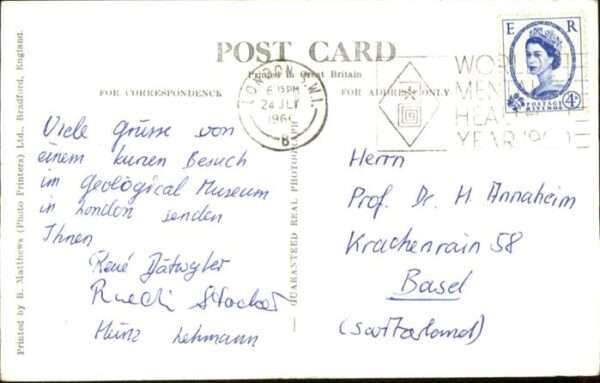 POST CARD
Printed in Great Britain
FOR CORRESPONDENCE
FOR ADDRESS ONLY
E R
POSTAGE
REVENUE
4D
LONDON S.W.1.
6 PM
24 JLY
196
B
WOR
MEN
HEA
YEAR 1960
Viele Grüsse von
einem kurzen Besuch
im Geological Museum
in London senden
Ihnen
René Dätwyler
Ruedi Stocker
Heinz Lehmann
Herrn
Prof. Dr. H. Annaheim
Krachenrain 58
Basel
(Switzerland)
Printed by B. Matthews (Photo Printers) Ltd., Bradford, England.
GUARANTEED REAL PHOTOGRAPH